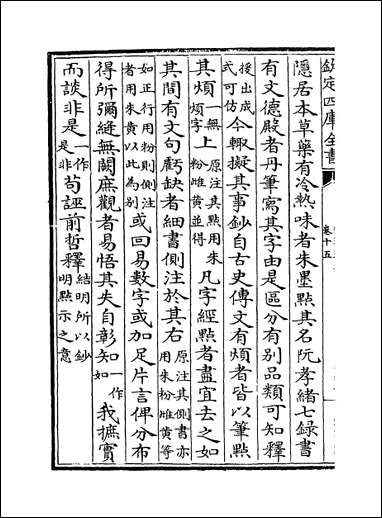 欽定四庫全書
卷十五
隱居本草藥有冷熱味者朱墨點其名阮孝緒七錄書
有文德殿者丹筆寫其字由是區分有别品類可知釋
授出成式可仿今輒擬其事鈔自古史傳文有煩者皆以筆點
其煩一無上煩字原注其點用朱粉雌黃並得凡字經點者盡宜去之如
其間有文句虧缺者細書側注於其右原注其側書亦用朱粉雌黃等
如正行用粉則側注者用朱黃以此為别或回易數字或加足片言俾分布
得所彌縫無闕庶觀者易悟其失自彰知一作如我摭實
而談非是一作是非苟誣前哲釋結明所以鈔明點示之意